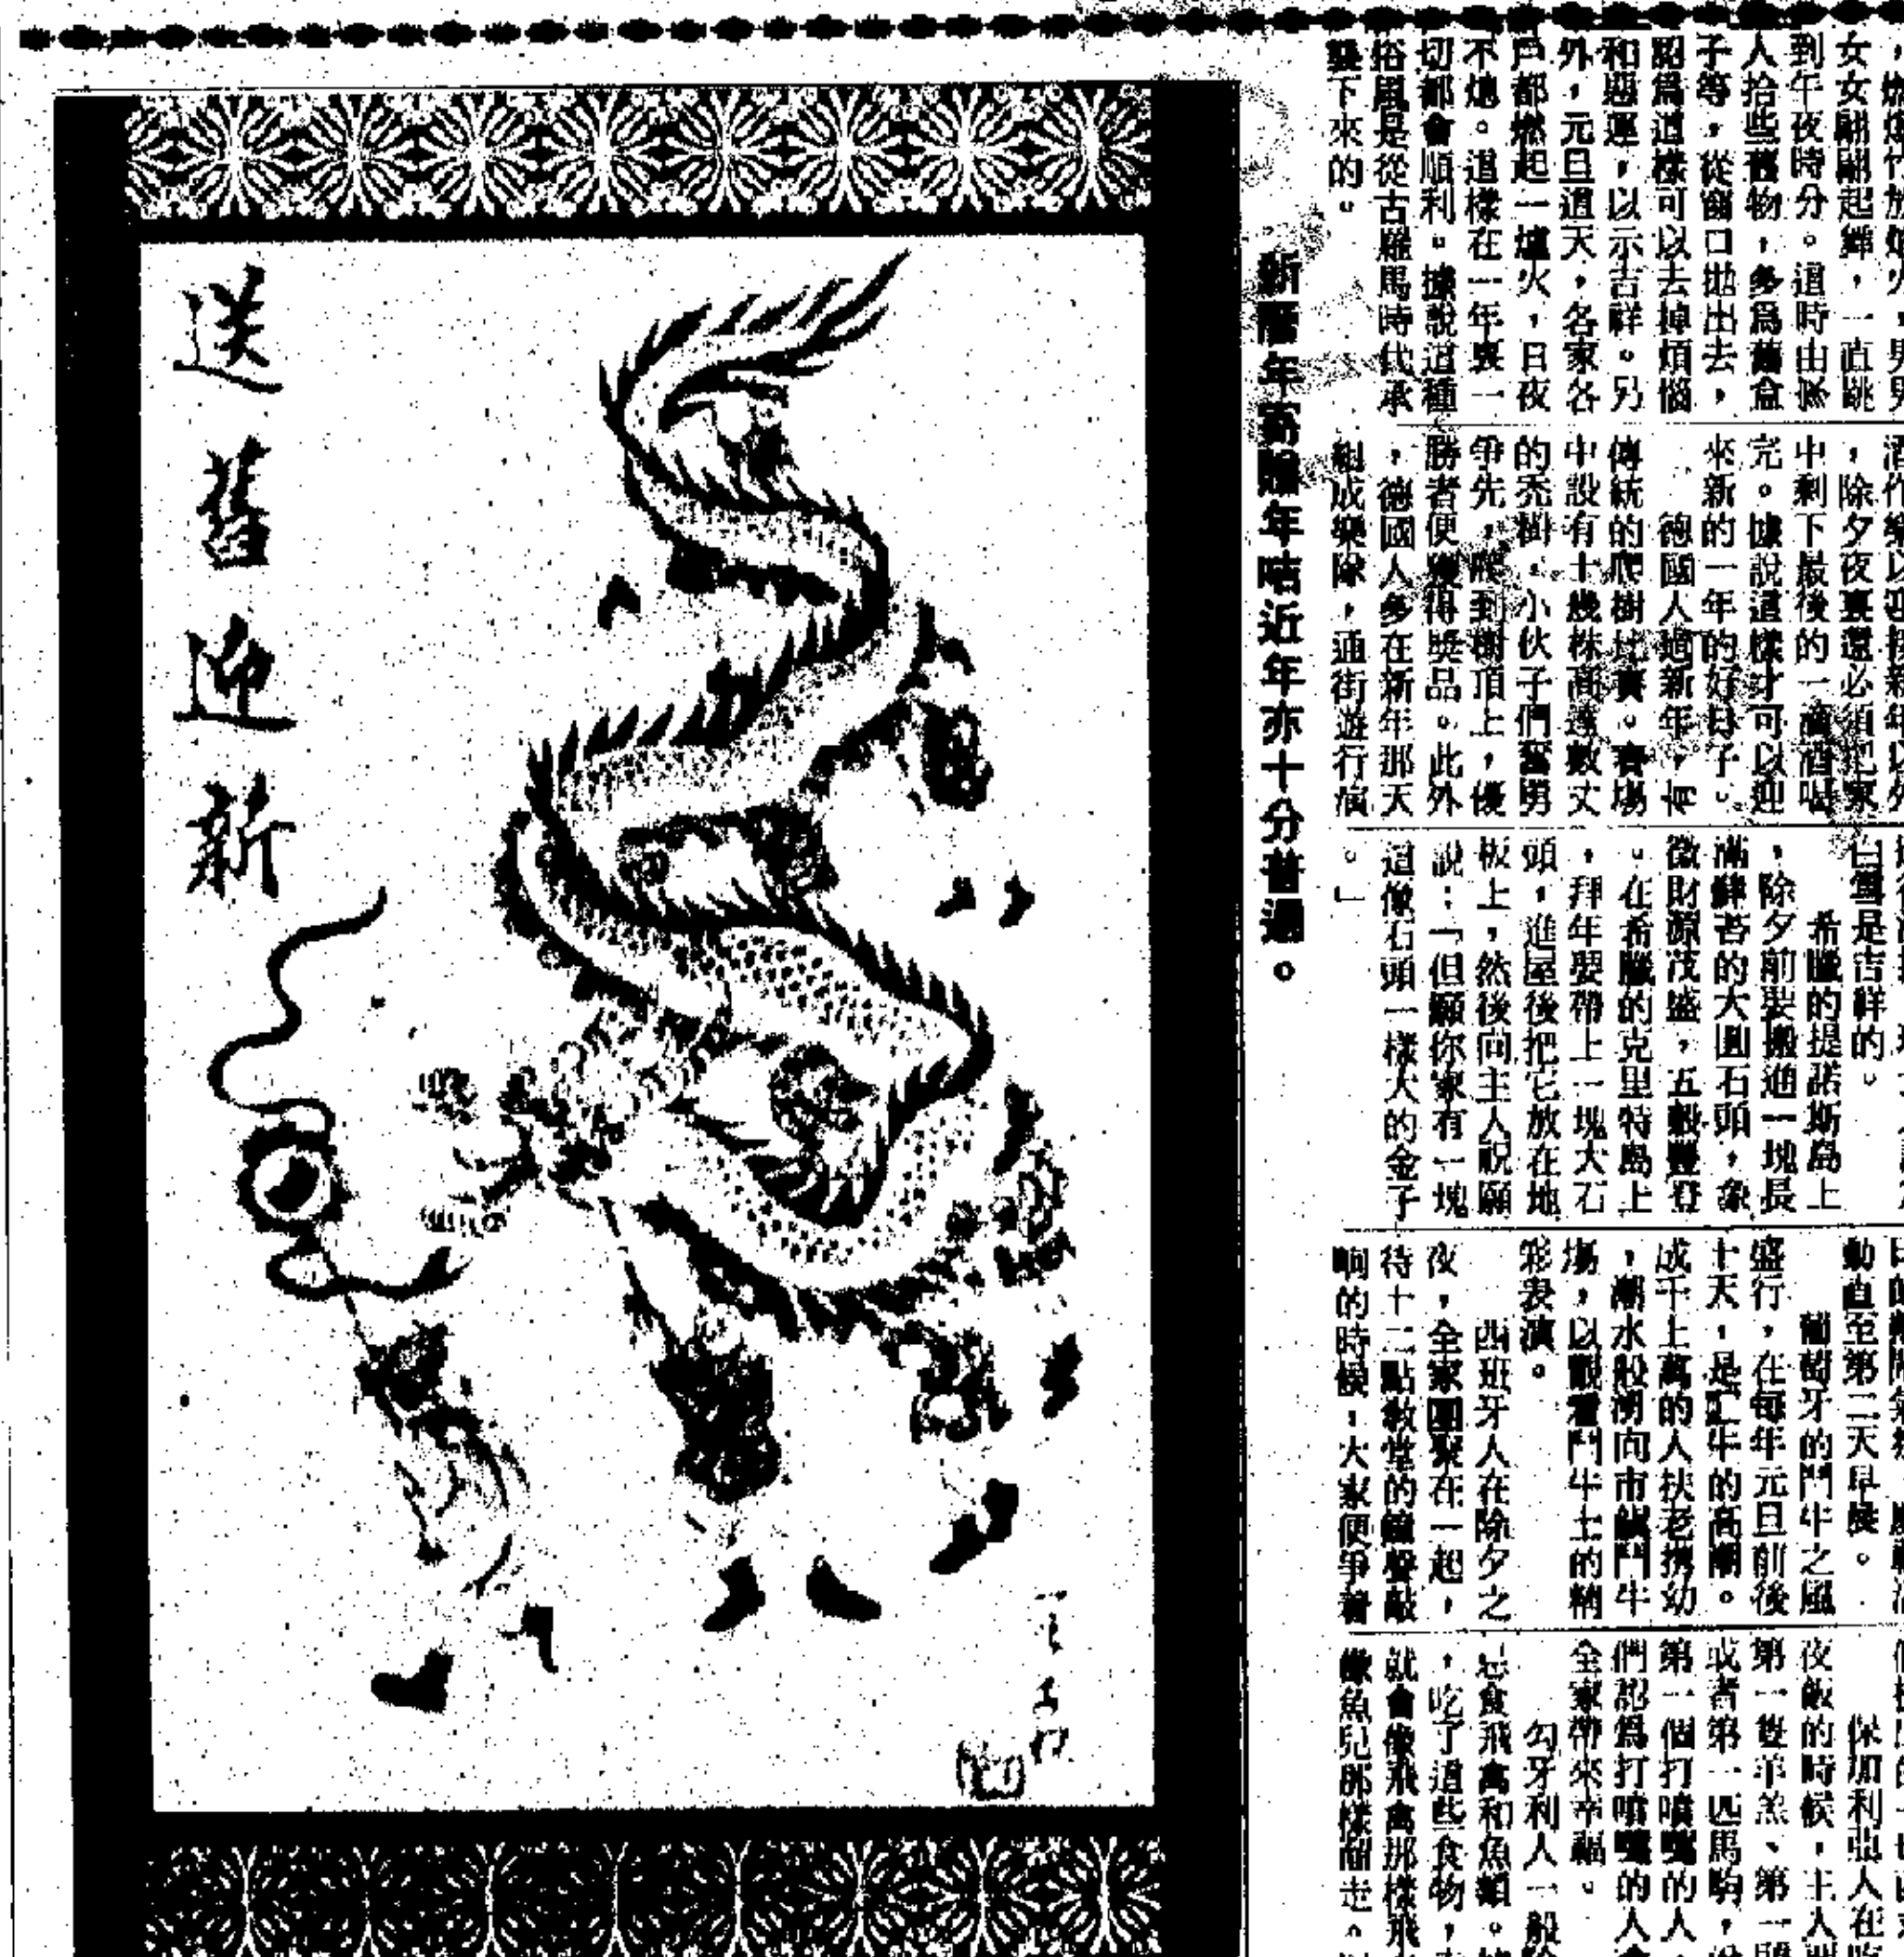 ，男男
女女翩翩起舞，一直跳
到午夜時分。這時由
人拾些舊物，多爲舊盒
子等，從窗口拋出去，
認爲這樣可以去掉煩惱
和惡運，以示吉祥。另
外，元旦這天，各家各
戶都燃起一爐火，日夜
不熄。這樣在一年裏一
切都會順利。據說這種
俗風是從古羅馬時代承
襲下來的。
酒作樂以迎接新年以外
，除夕夜裏還必須把家
中剩下最後的一滴酒喝
完。據說這樣才可以迎
來新的一年的好日子。
德國人過新年，
傳統的爬樹比賽。賽場
中設有十幾株高達數丈
的禿樹，小伙子們奮勇
爭先，爬到樹頂上，優
勝者便獲得獎品。此外
，德國人多在新年那天
組成樂隊，通街遊行演
白雪是吉祥的。
希臘的提諾斯島上
，除夕前要搬進一塊長
滿鮮苔的大圓石頭，象
徵財源茂盛，五穀豐登
。在希臘的克里特島上
，拜年要帶上一塊大石
頭，進屋後把它放在地
板上，然後向主人祝願
說：「但願你家有一塊
這像石頭一樣大的金子
。」
動直至第二天早晨。
葡萄牙的鬥牛之風
盛行，在每年元旦前後
十天，是鬥牛的高潮。
成千上萬的人扶老携幼
，潮水般湧向市鎮鬥牛
場，以觀看鬥牛士的精
彩表演。
西班牙人在除夕之
夜，全家團聚在一起，
待十二點教堂的鐘聲敲
响的時候，大家便爭着
保加利亞人在
夜飯的時候，主人
第一隻羊羔、第一
或者第一匹馬駒，
第一個打噴嚏的人，
們認爲打噴嚏的人
全家帶來幸福。
匈牙利人一般
忌食飛禽和魚類。
，吃了這些食物，
就會像飛禽那樣飛
像魚兒那樣溜走。
新曆年寄贈年咭近年亦十分普遍。
送舊迎新